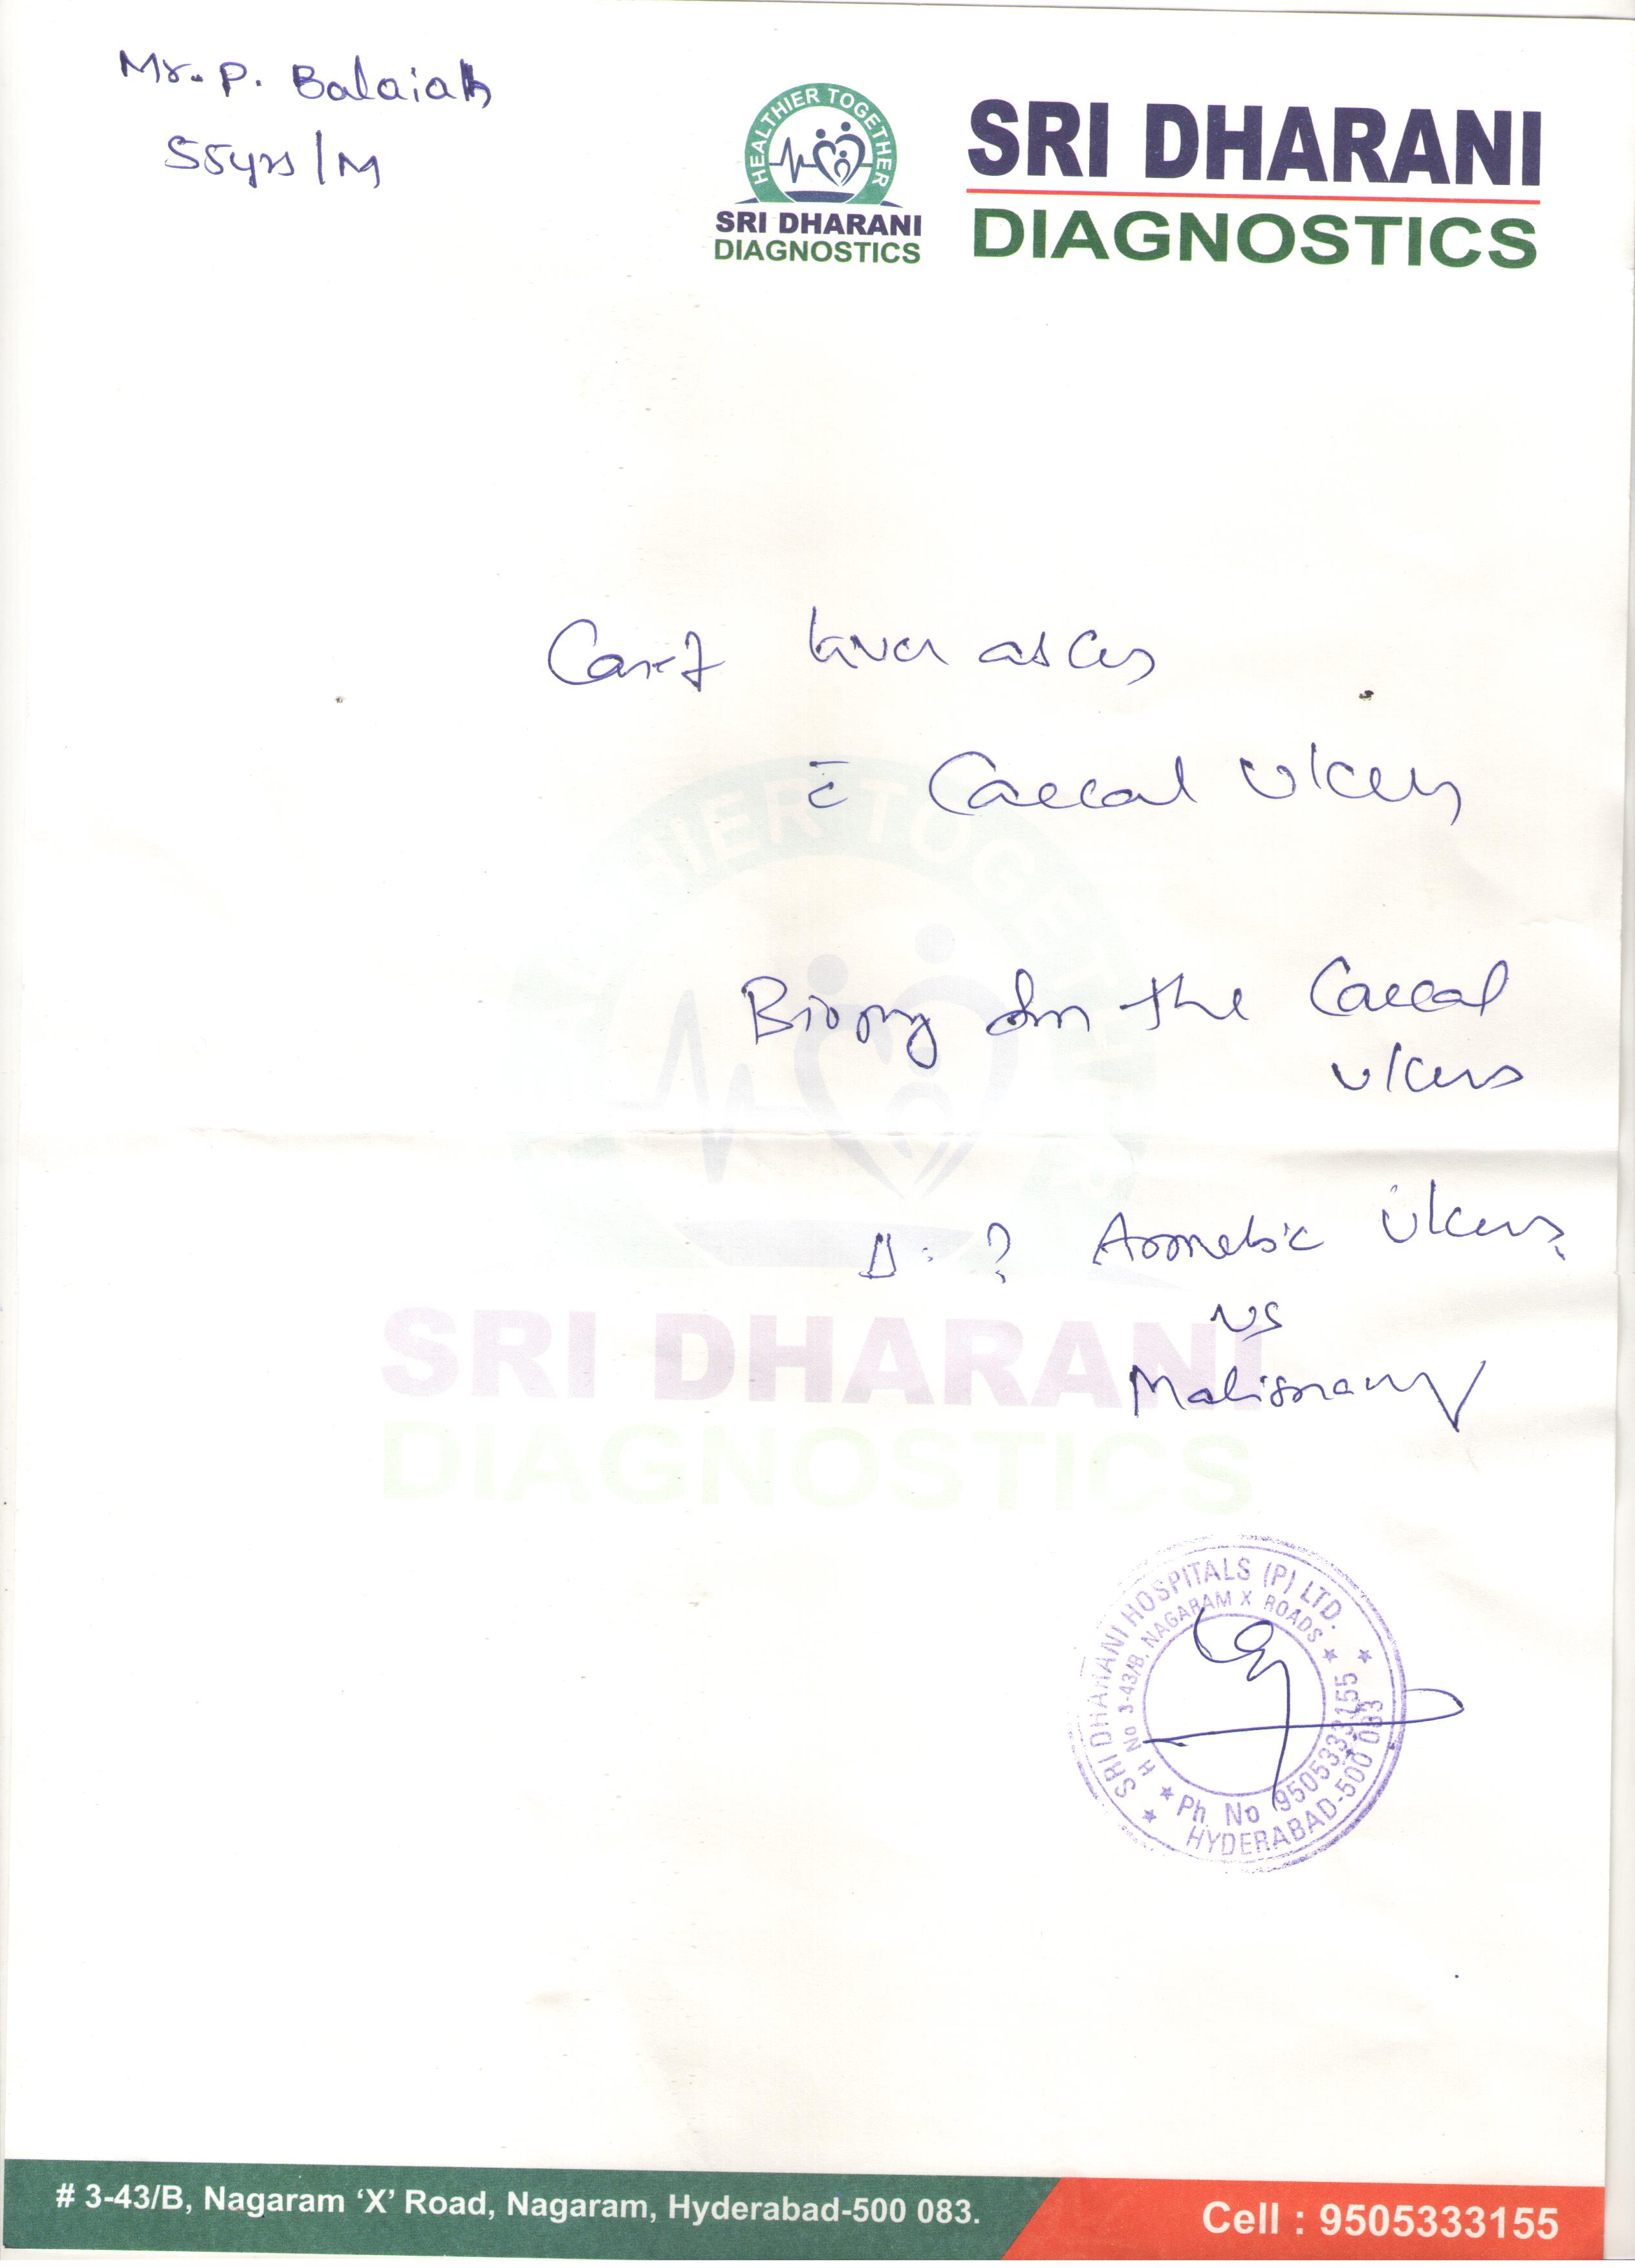 Mr. P. Balaiah
55yrs/M
HEALTHIER TOGETHER
SRI DHARANI
DIAGNOSTICS
SRI DHARANI
DIAGNOSTICS
Case of liver abscess
c̄ Caecal ulcers
Biopsy from the Caecal
ulcers
Δ: ? Amoebic Ulcers
vs
Malignancy
SRI DHARANI
DIAGNOSTICS
SRI DHARANI HOSPITALS (P) LTD.
H No 3-43/B, NAGARAM X ROADS
Ph No 9505333155
HYDERABAD-500 083
# 3-43/B, Nagaram ‘X’ Road, Nagaram, Hyderabad-500 083.
Cell : 9505333155